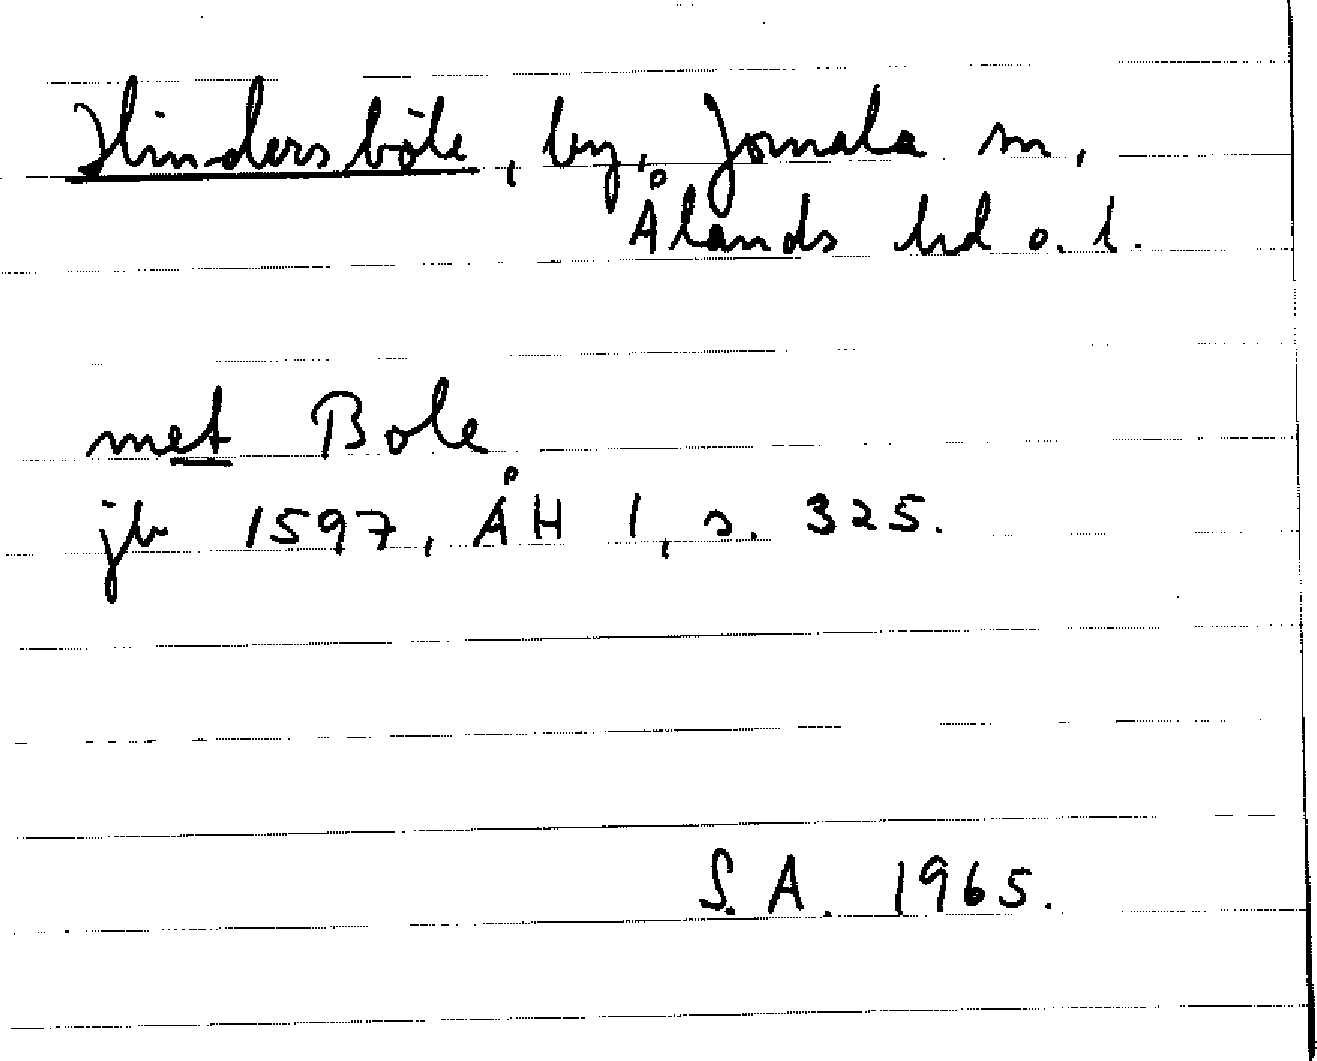 Hindersböle, by, Jomala sn,
Ålands hd o. l.
met Bole
jb 1597, ÅH 1, s. 325.
S. A. 1965.